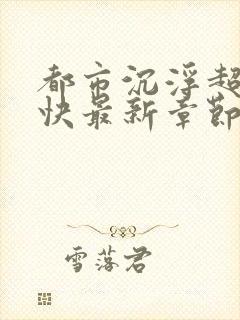 都市沉浮超
快最新章節
雪落君